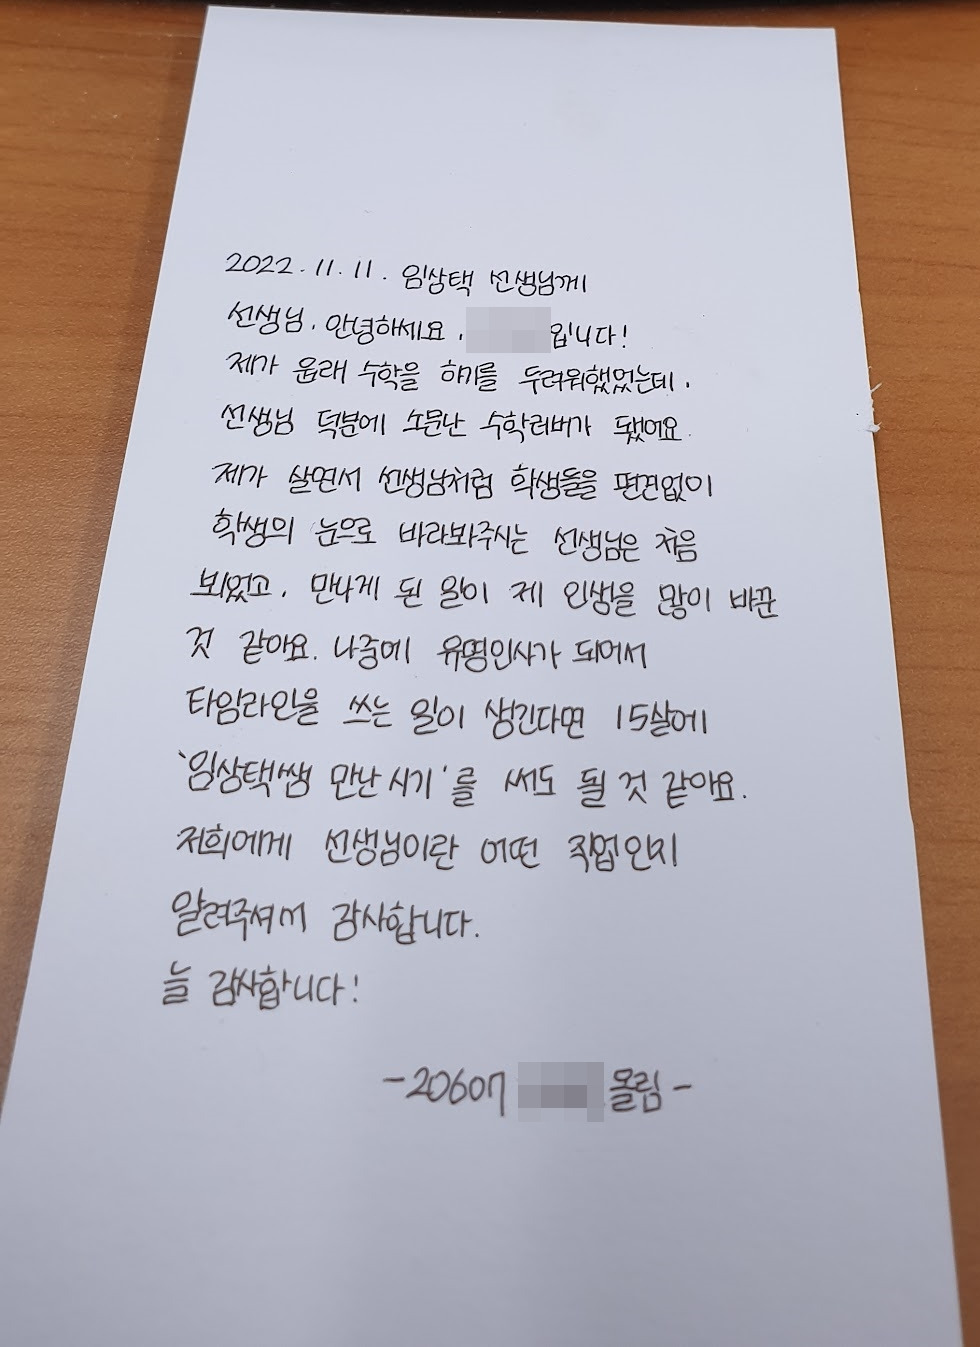 2022.11.11. 임상택 선생님께
선생님, 안녕하세요, 입니다!
제가 원래 수학을 하기를 두려워했었는데,
선생님 덕분에 소문난 수학러버가 됐어요.
제가 살면서 선생님처럼 학생들을 편견없이
학생의 눈으로 바라봐주시는 선생님은 처음
뵈었고, 만나게 된 일이 제 인생을 많이 바꾼
것 같아요. 나중에 유명인사가 되어서
타임라인을 쓰는 일이 생긴다면 15살에
'임상택쌤 만난시기'를 써도 될 것 같아요.
저희에게 선생님이란 어떤 직업인지
알려주셔서 감사합니다.
늘 감사합니다!
-20607 몰림-